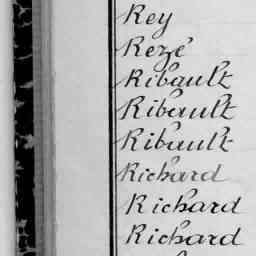 Rey
Rezé
Ribault
Ribault
Ribault
Richard
Richard
Richard